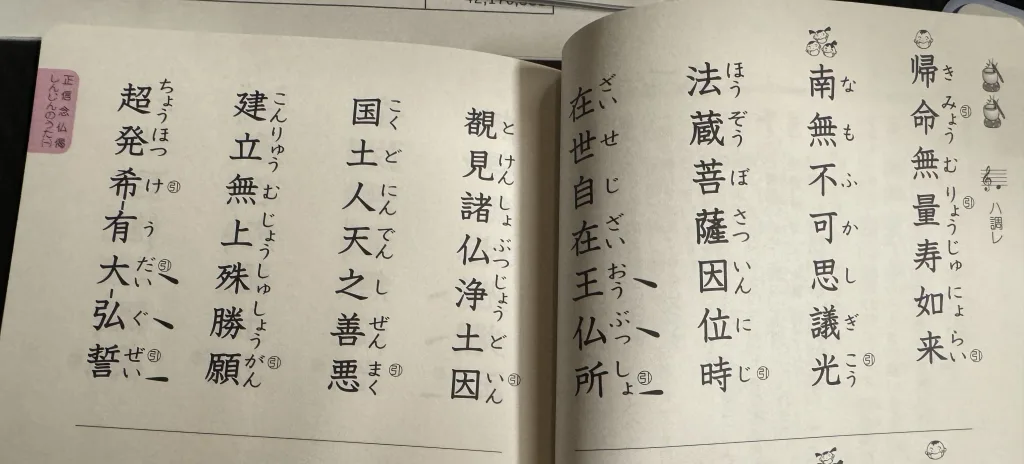 ハ調レ
帰命無量寿如来
き みょう引 む りょう引 じゅ にょ らい引
南無不可思議光
な も ふ か し ぎ こう引
法蔵菩薩因位時
ほう ぞう ぼ さつ いん に じ引
在世自在王仏所
ざい せ じ ざい おう ぶつ しょ引
観見諸仏浄土因
と けん しょ ぶつ じょう ど いん引
国土人天之善悪
こく ど にん でん し ぜん まく引
建立無上殊勝願
こん りゅう む じょう しゅ しょう がん引
超発希有大弘誓
ちょう ほつ け引 う だい引 ぐ ぜい引
正信念仏偈
しんじんのうた